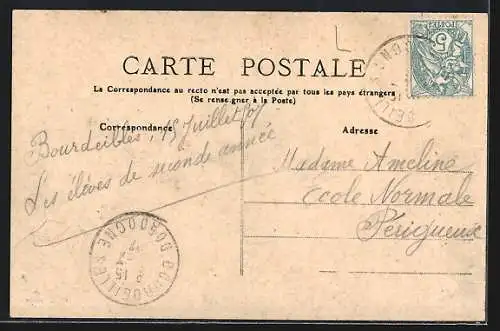 CARTE POSTALE
La Correspondance au recto n'est pas acceptée par tous les pays étrangers
(Se renseigner à la Poste)
Correspondance
Adresse
Bourdeilles, 15 Juillet 07
Les élèves de seconde année
Madame Ameline
École Normale
Périgueux
BOURDEILLES DORDOGNE
15
5
POSTES